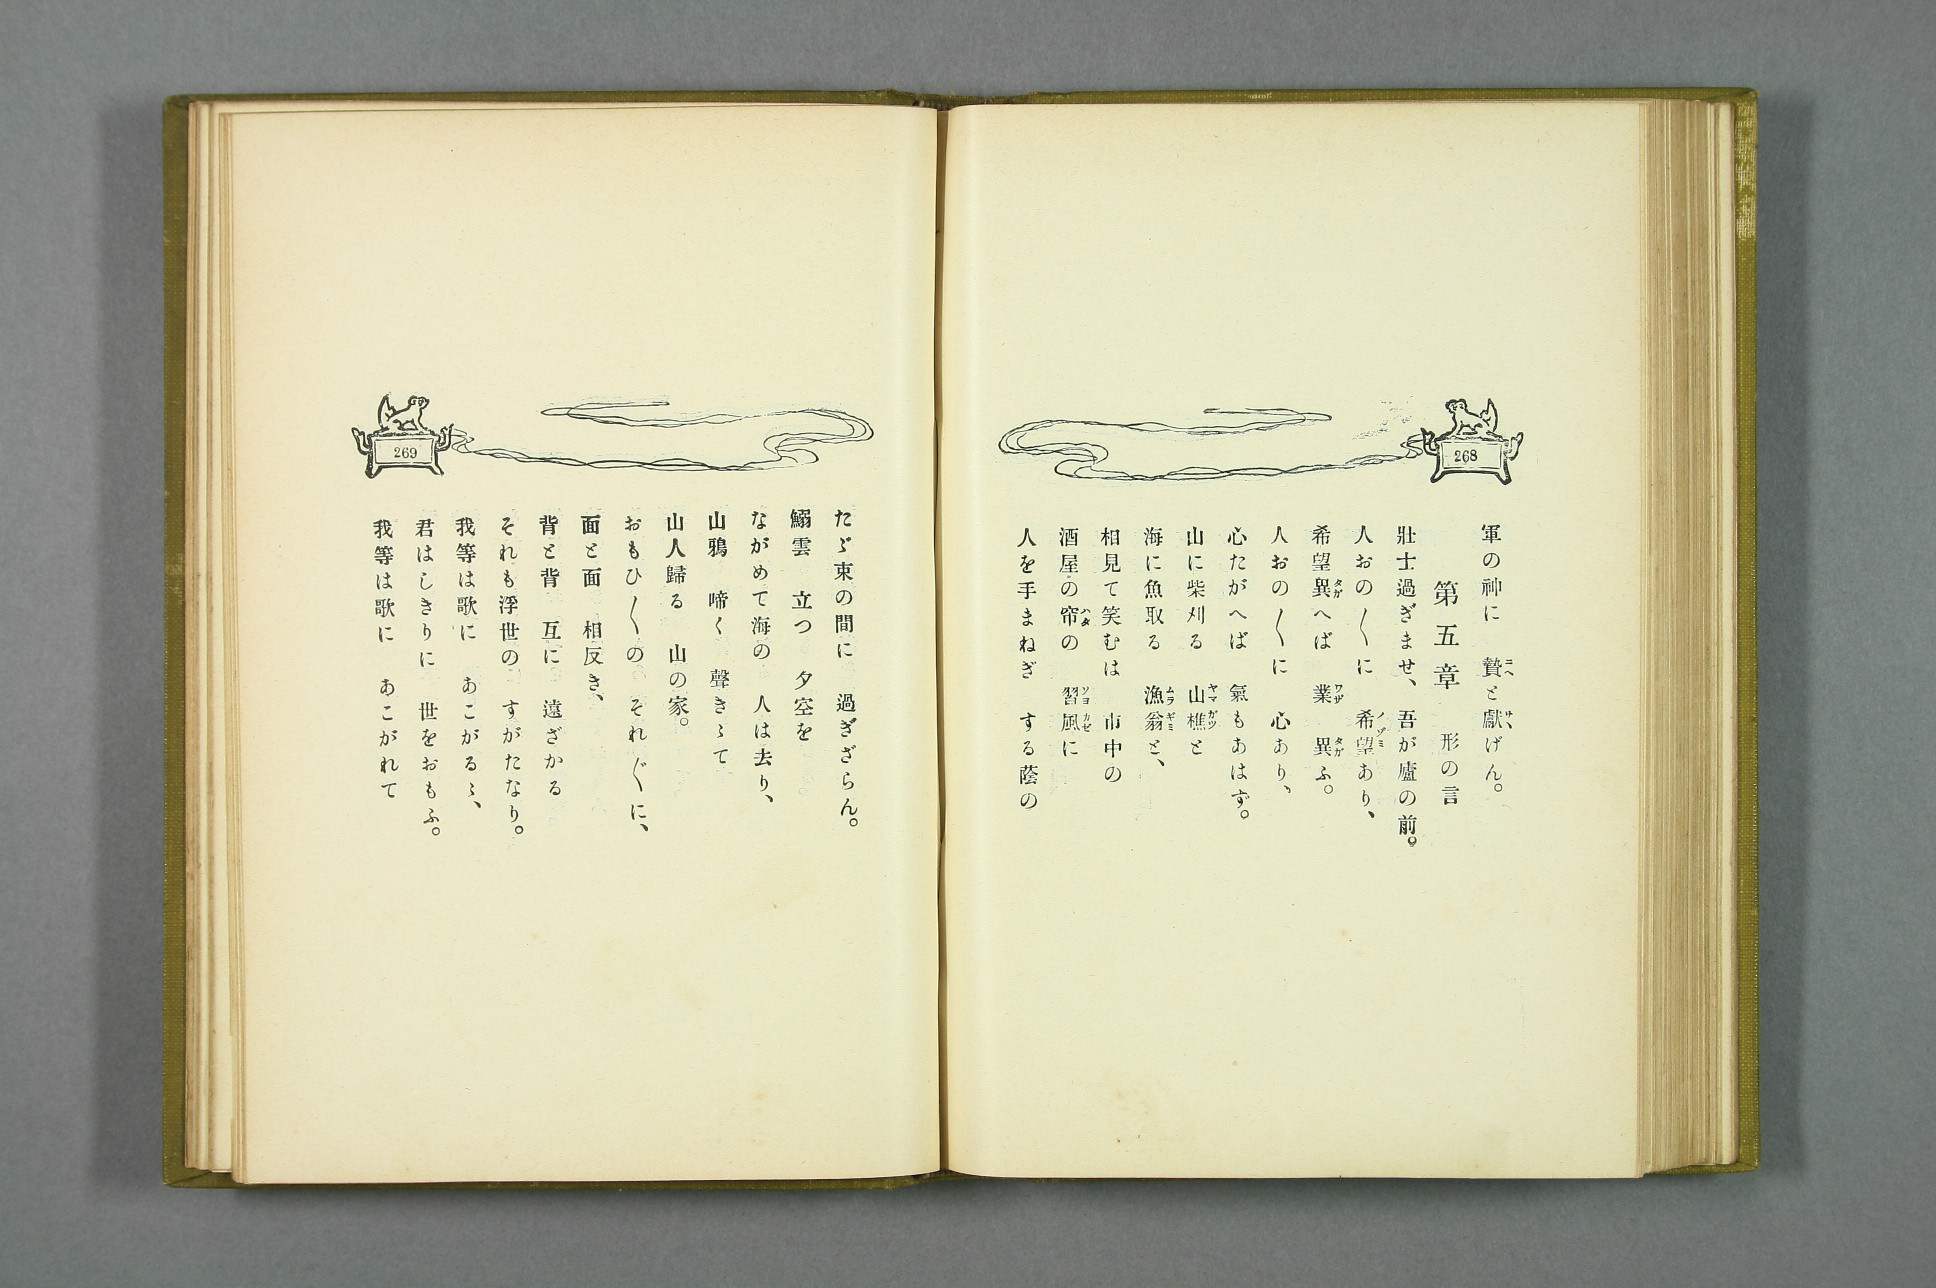 268
軍の神に　贄と獻げん。
第五章　形の言
壯士過ぎませ、吾が廬の前。
人おの〳〵に　希望あり、
希望異へば　業　異ふ。
人おの〳〵に　心あり、
心たがへば　氣もあはず。
山に柴刈る　山樵と
海に魚取る　漁翁と、
相見て笑むは　市中の
酒屋の帘の　習風に
人を手まねぎ　する蔭の
269
たゞ束の間に　過ぎざらん。
鰯雲　立つ　夕空を
ながめて海の　人は去り、
山鴉　啼く　聲きゝて
山人歸る　山の家。
おもひ〳〵の　それ〴〵に、
面と面　相反き、
背と背　互に　遠ざかる
それも浮世の　すがたなり。
我等は歌に　あこがるゝ、
君はしきりに　世をおもふ。
我等は歌に　あこがれて